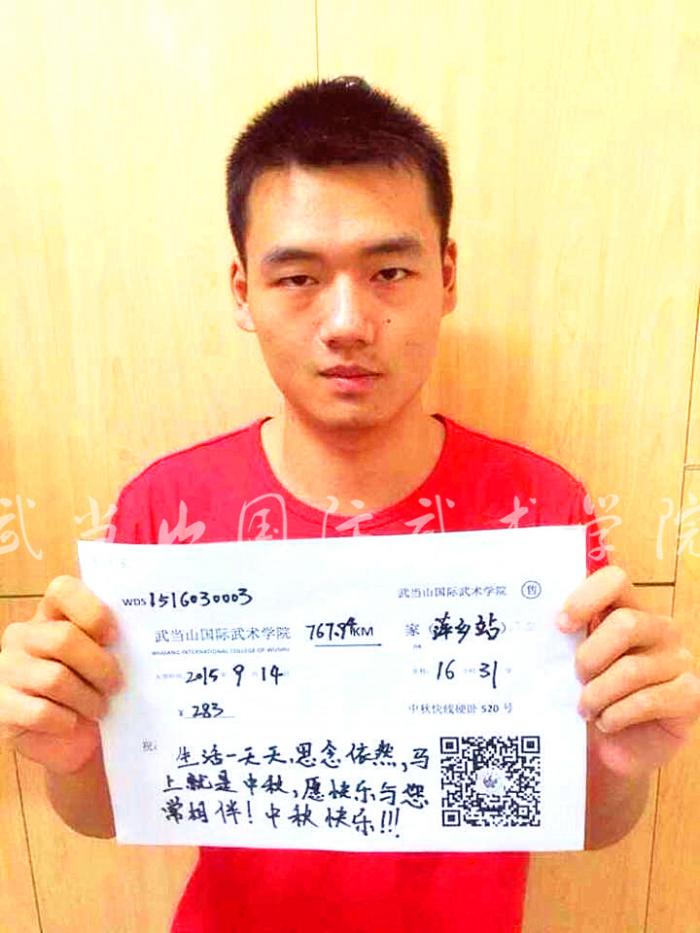 武当山国际武术学院
WDS1516030003 武当山国际武术学院 售
武当山国际武术学院 767.94KM 家(萍乡站)
WUDANG INTERNATIONAL COLLEGE OF WUSHU
2015年9月14 16 31
¥283 中秋快线硬卧520号
祝:
生活一天天,思念依然,马
上就是中秋,愿快乐与您
常相伴!中秋快乐!!!